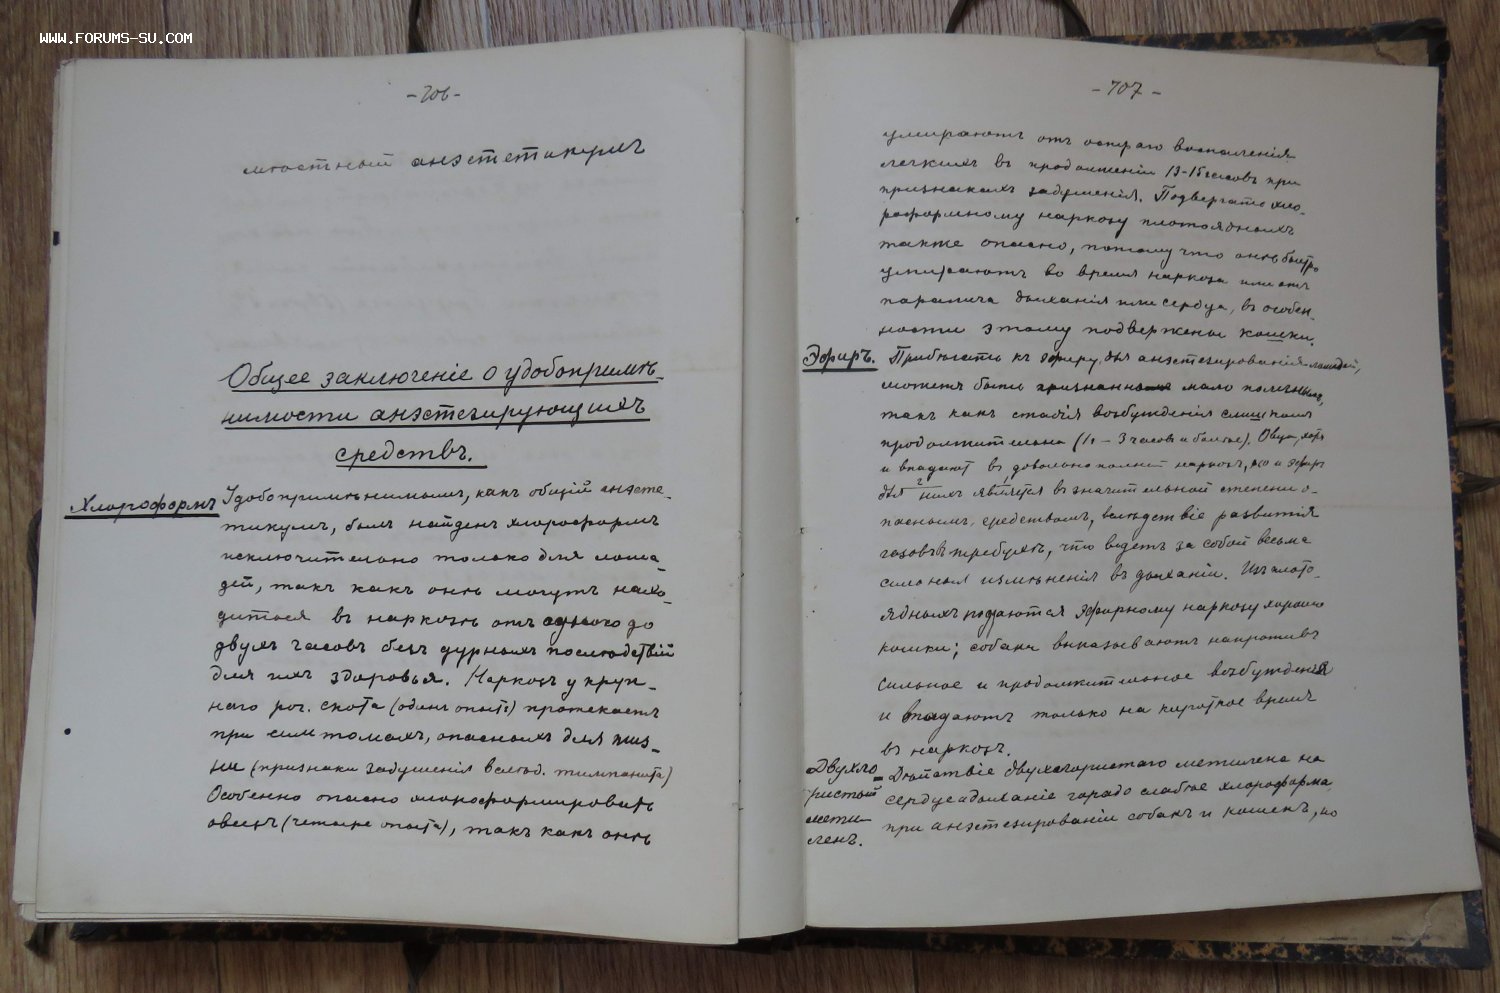 WWW.FORUMS-SU.COM
-706-
мѣстный анэстетикумъ
Общее заключеніе о удобопримѣ-
нимости анэстезирующихъ
средствъ.
Хлороформъ
Удобопримѣнимымъ, какъ общій анэсте-
тикумъ, былъ найденъ хлороформъ
исключительно только для лоша-
дей, такъ какъ онѣ могутъ нахо-
диться въ наркозѣ отъ одного до
двухъ часовъ безъ дурныхъ послѣдствій
для ихъ здоровья. Наркозъ у круп-
наго рог. скота (одинъ опытъ) протекаетъ
при симптомахъ, опасныхъ для жиз-
ни (признаки задушенія вслѣд. тимпанита)
Особенно опасно хлороформировать
овецъ (четыре опыта), такъ какъ онѣ
-707-
умираютъ отъ остраго воспаленія
легкихъ въ продолженіи 13-15 часовъ при
признакахъ задушенія. Подвергать хло-
роформному наркозу плотоядныхъ
также опасно, потому что онѣ быстро
умираютъ во время наркоза или отъ
паралича дыханія или сердца, въ особен-
ности этому подвержены кошки.
Эфиръ.
Прибѣгать къ эфиру для анэстезированія лошадей,
можетъ быть признанно мало полезнымъ,
такъ какъ стадія возбужденія слишкомъ
продолжительна (½ - 3 часовъ и болѣе). Овцы, хотя
и впадаютъ въ довольно полный наркозъ, но и эфиръ
для нихъ является въ значительной степени о-
паснымъ средствомъ, вслѣдствіе развитія
газовъ въ требухѣ, что ведетъ за собой весьма
сильныя измѣненія въ дыханіи. Изъ плото-
ядныхъ поддаются эфирному наркозу хорошо
кошки; собаки выказываютъ напротивъ
сильное и продолжительное возбужденіе
и впадаютъ только на короткое время
въ наркозъ.
Двухло-
ристый
мети-
ленъ.
Дѣйствіе двухлористаго метилена на
сердце и дыханіе гораздо слабѣе хлороформа
при анэстезированіи собакъ и кошекъ, но